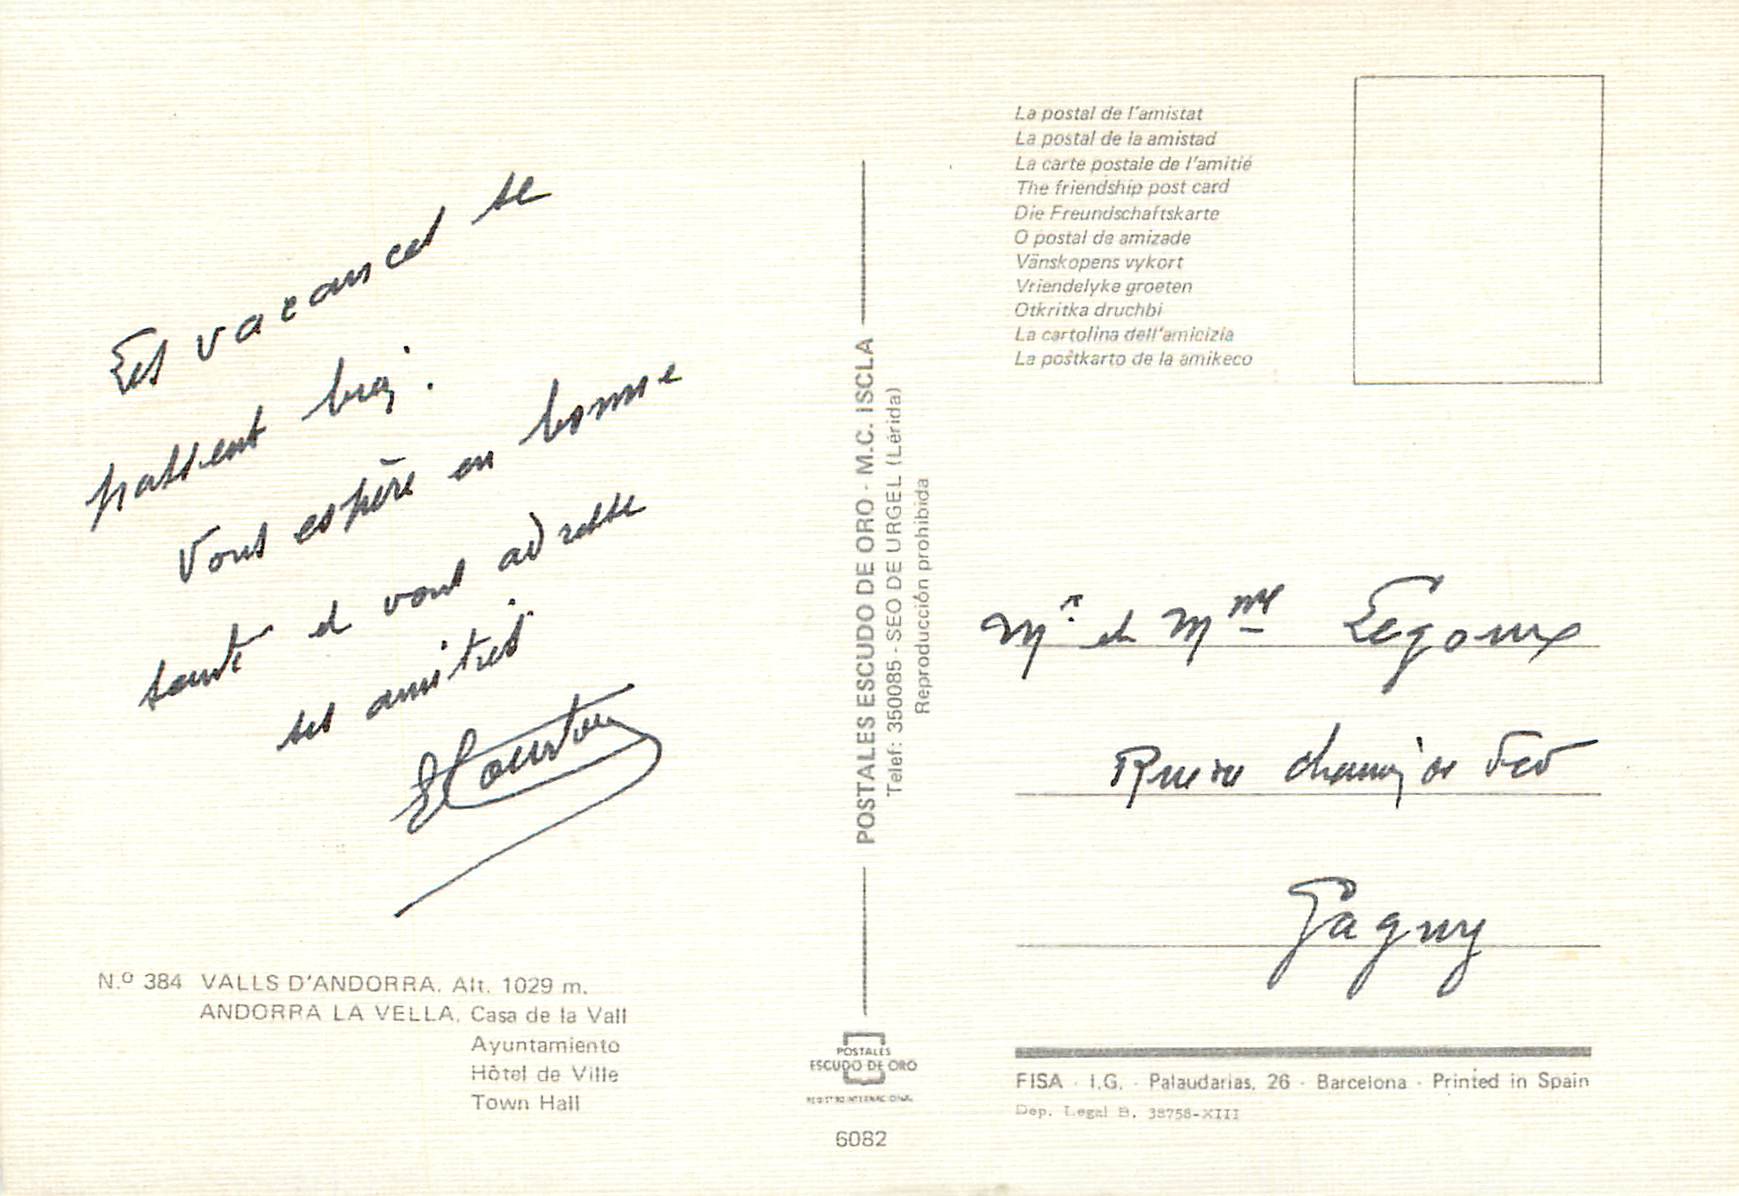 Les vacances se
passent bien.
Vous espère en bonne
santé et vous adresse
ses amitiés
N.º 384 VALLS D'ANDORRA. Alt. 1029 m.
ANDORRA LA VELLA. Casa de la Vall
Ayuntamiento
Hôtel de Ville
Town Hall
POSTALES ESCUDO DE ORO - M.C. ISCLA
Telef: 350085 - SEO DE URGEL (Lérida)
Reproducción prohibida
POSTALES
ESCUDO DE ORO
REGISTRO INTERNACIONAL
6082
La postal de l'amistat
La postal de la amistad
La carte postale de l'amitié
The friendship post card
Die Freundschaftskarte
O postal de amizade
Vänskopens vykort
Vriendelyke groeten
Otkritka druchbi
La cartolina dell'amicizia
La postkarto de la amikeco
Mr. et Mme Legoux
Gagny
FISA - I.G. - Palaudarias, 26 - Barcelona - Printed in Spain
Dep. Legal B. 38758-XIII